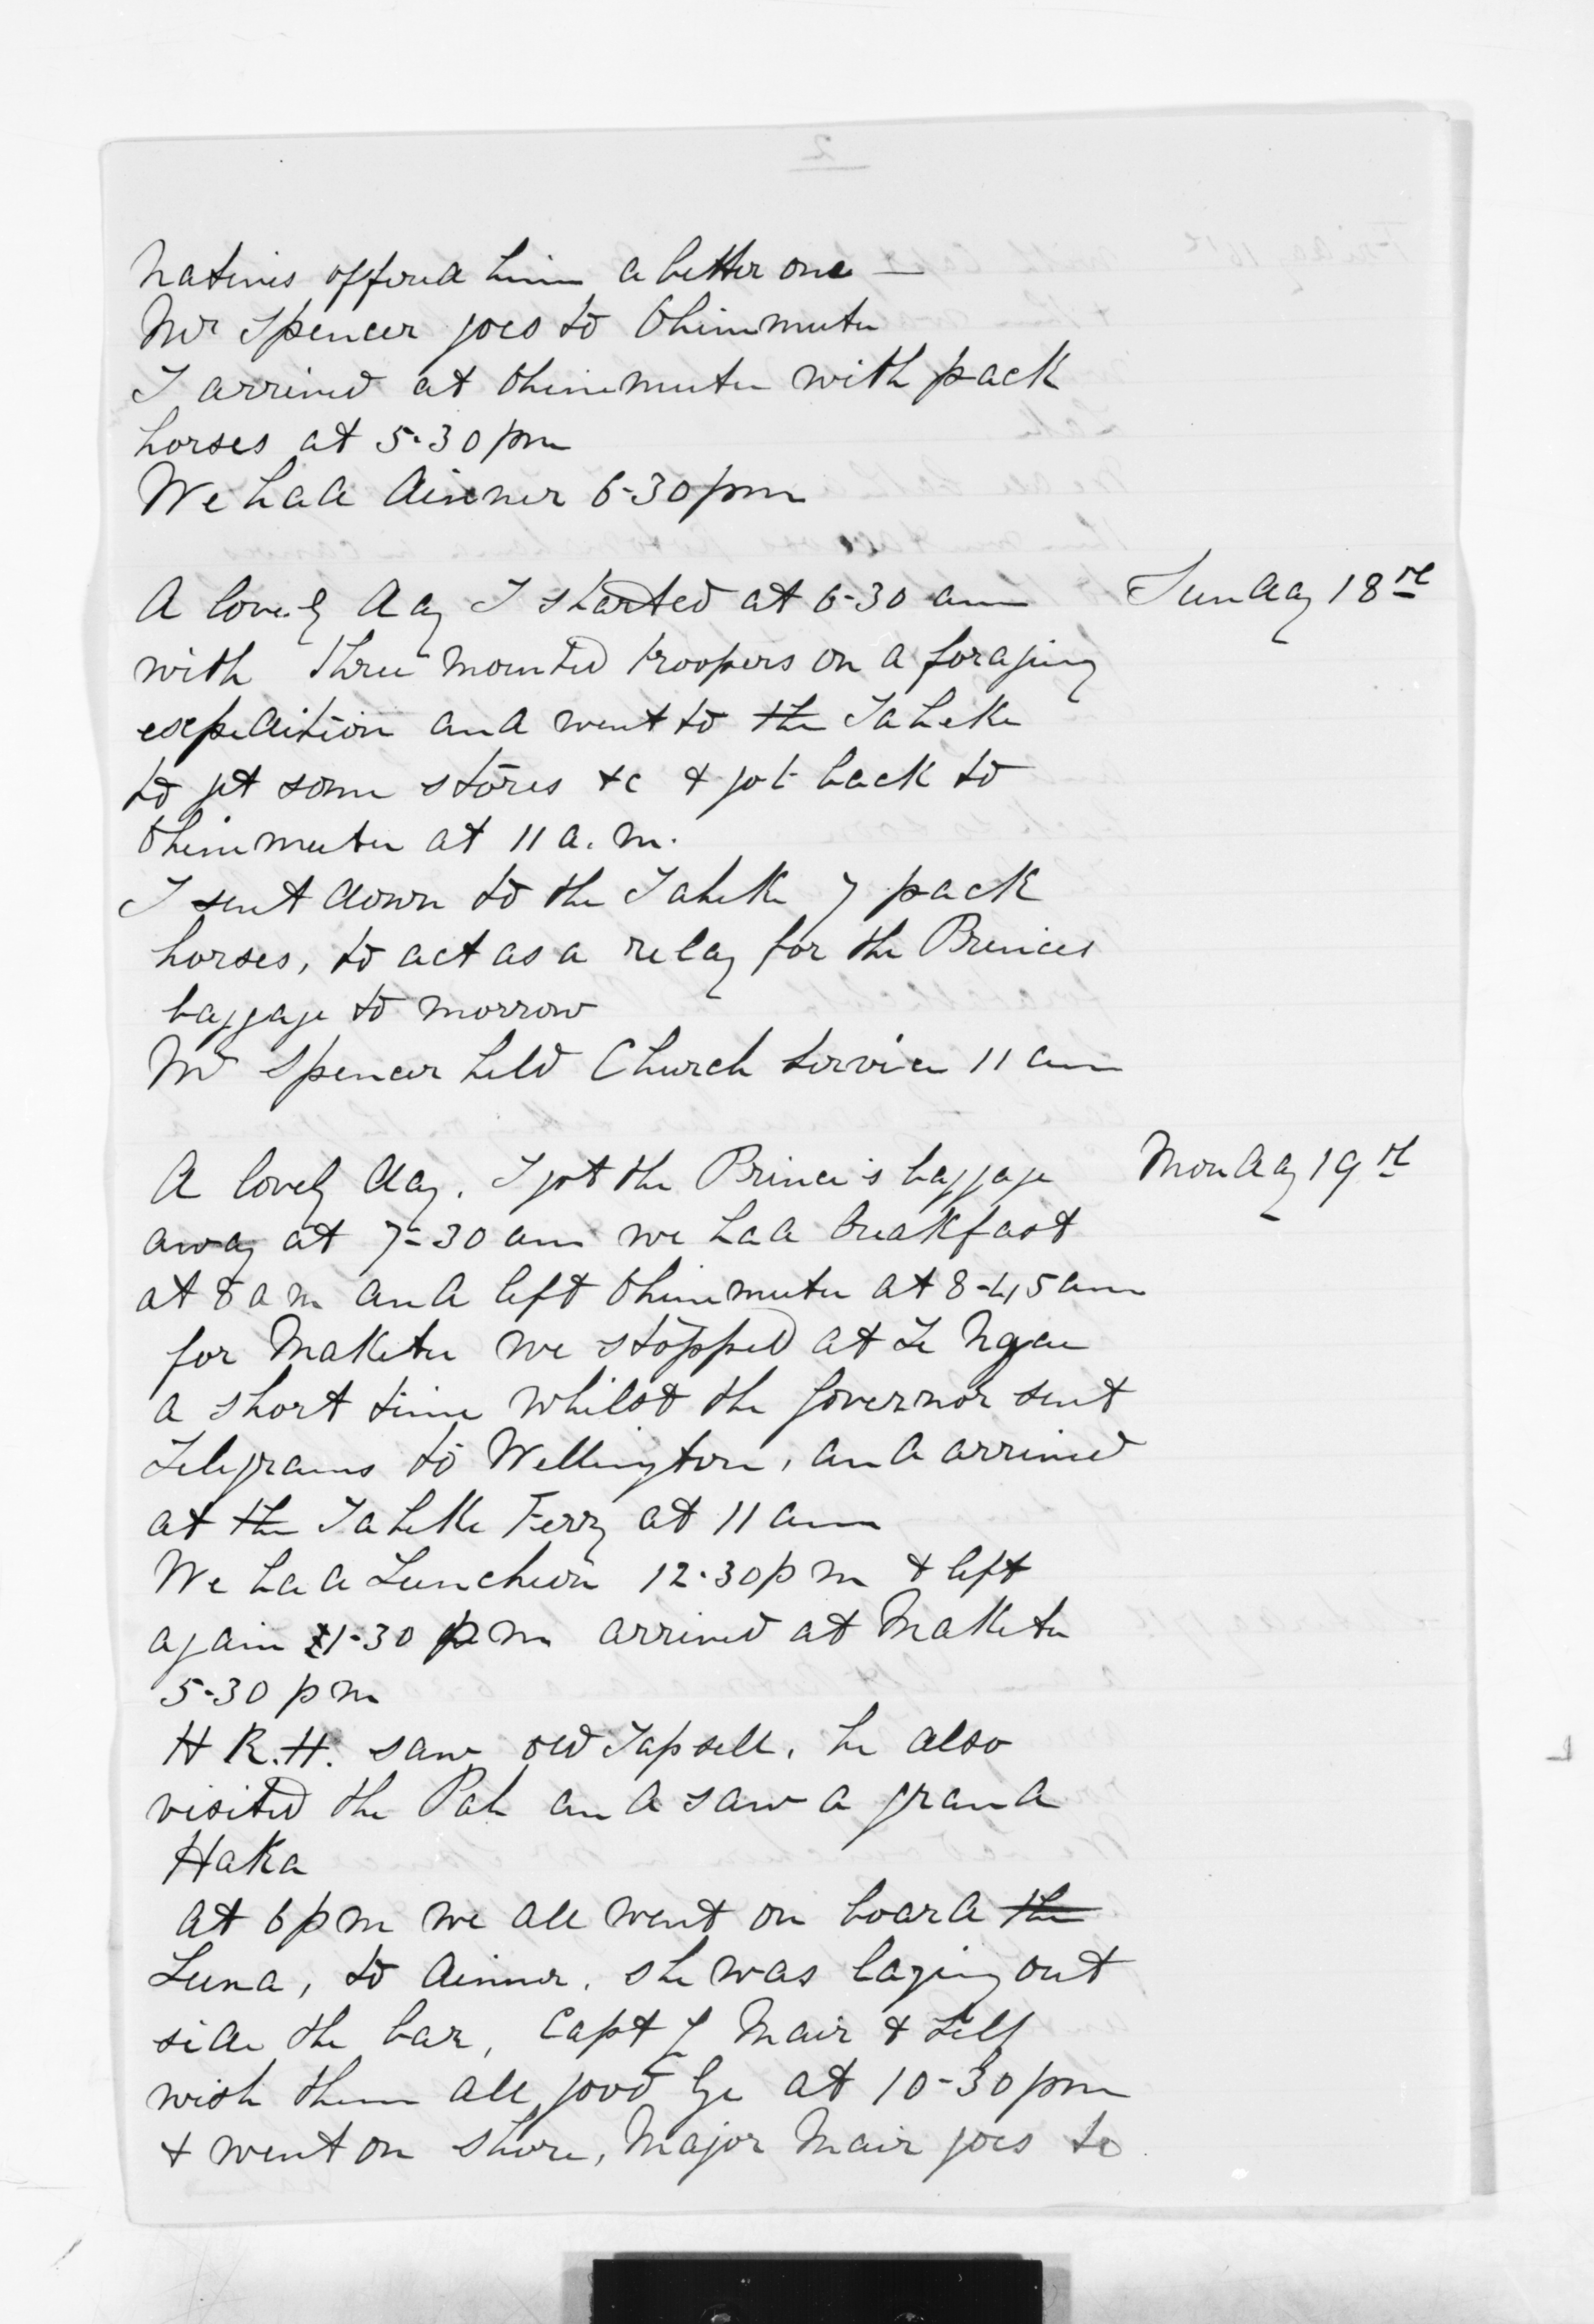 natives offered him a better one —
Mr Spencer goes to Ohinemutu
I arrived at Ohinemutu with pack
horses at 5-30 pm
We had dinner 6-30 pm
Sunday 18th
A lovely day I started at 6-30 am
with three mounted troopers on a foraging
expedition and went to the Taheke
to get some stores &c & got back to
Ohinemutu at 11 a.m.
I sent down to the Taheke 7 pack
horses, to act as a relay for the Princes
baggage to morrow
Mr Spencer held Church Service 11 am
Monday 19th
A lovely day. I got the Prince's baggage
away at 7-30 am we had breakfast
at 8 am and left Ohinemutu at 8-45 am
for Maketu we stopped at Te Ngae
a short time whilst the Governor sent
Telegrams to Wellington, and arrived
at the Taheke Ferry at 11 am
We had Luncheon 12-30 pm & left
again 1-30 pm arrived at Maketu
5-30 pm
H R.H. saw old Tapsell, he also
visited the Pah and saw a grand
Haka
at 6 pm we all went on board the
Luna, to dinner. she was laying out
side the bar, Capt G Mair & Self
wish them all good bye at 10-30 pm
& went on shore, Major Mair goes to